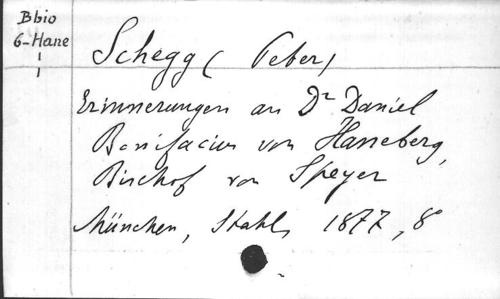 Bbio
6-Hane
1
1
Schegg (Peter)
Erinnerungen an Dr Daniel
Bonifacius von Haneberg,
Bischof von Speyer
München, Stahl, 1877, 8°